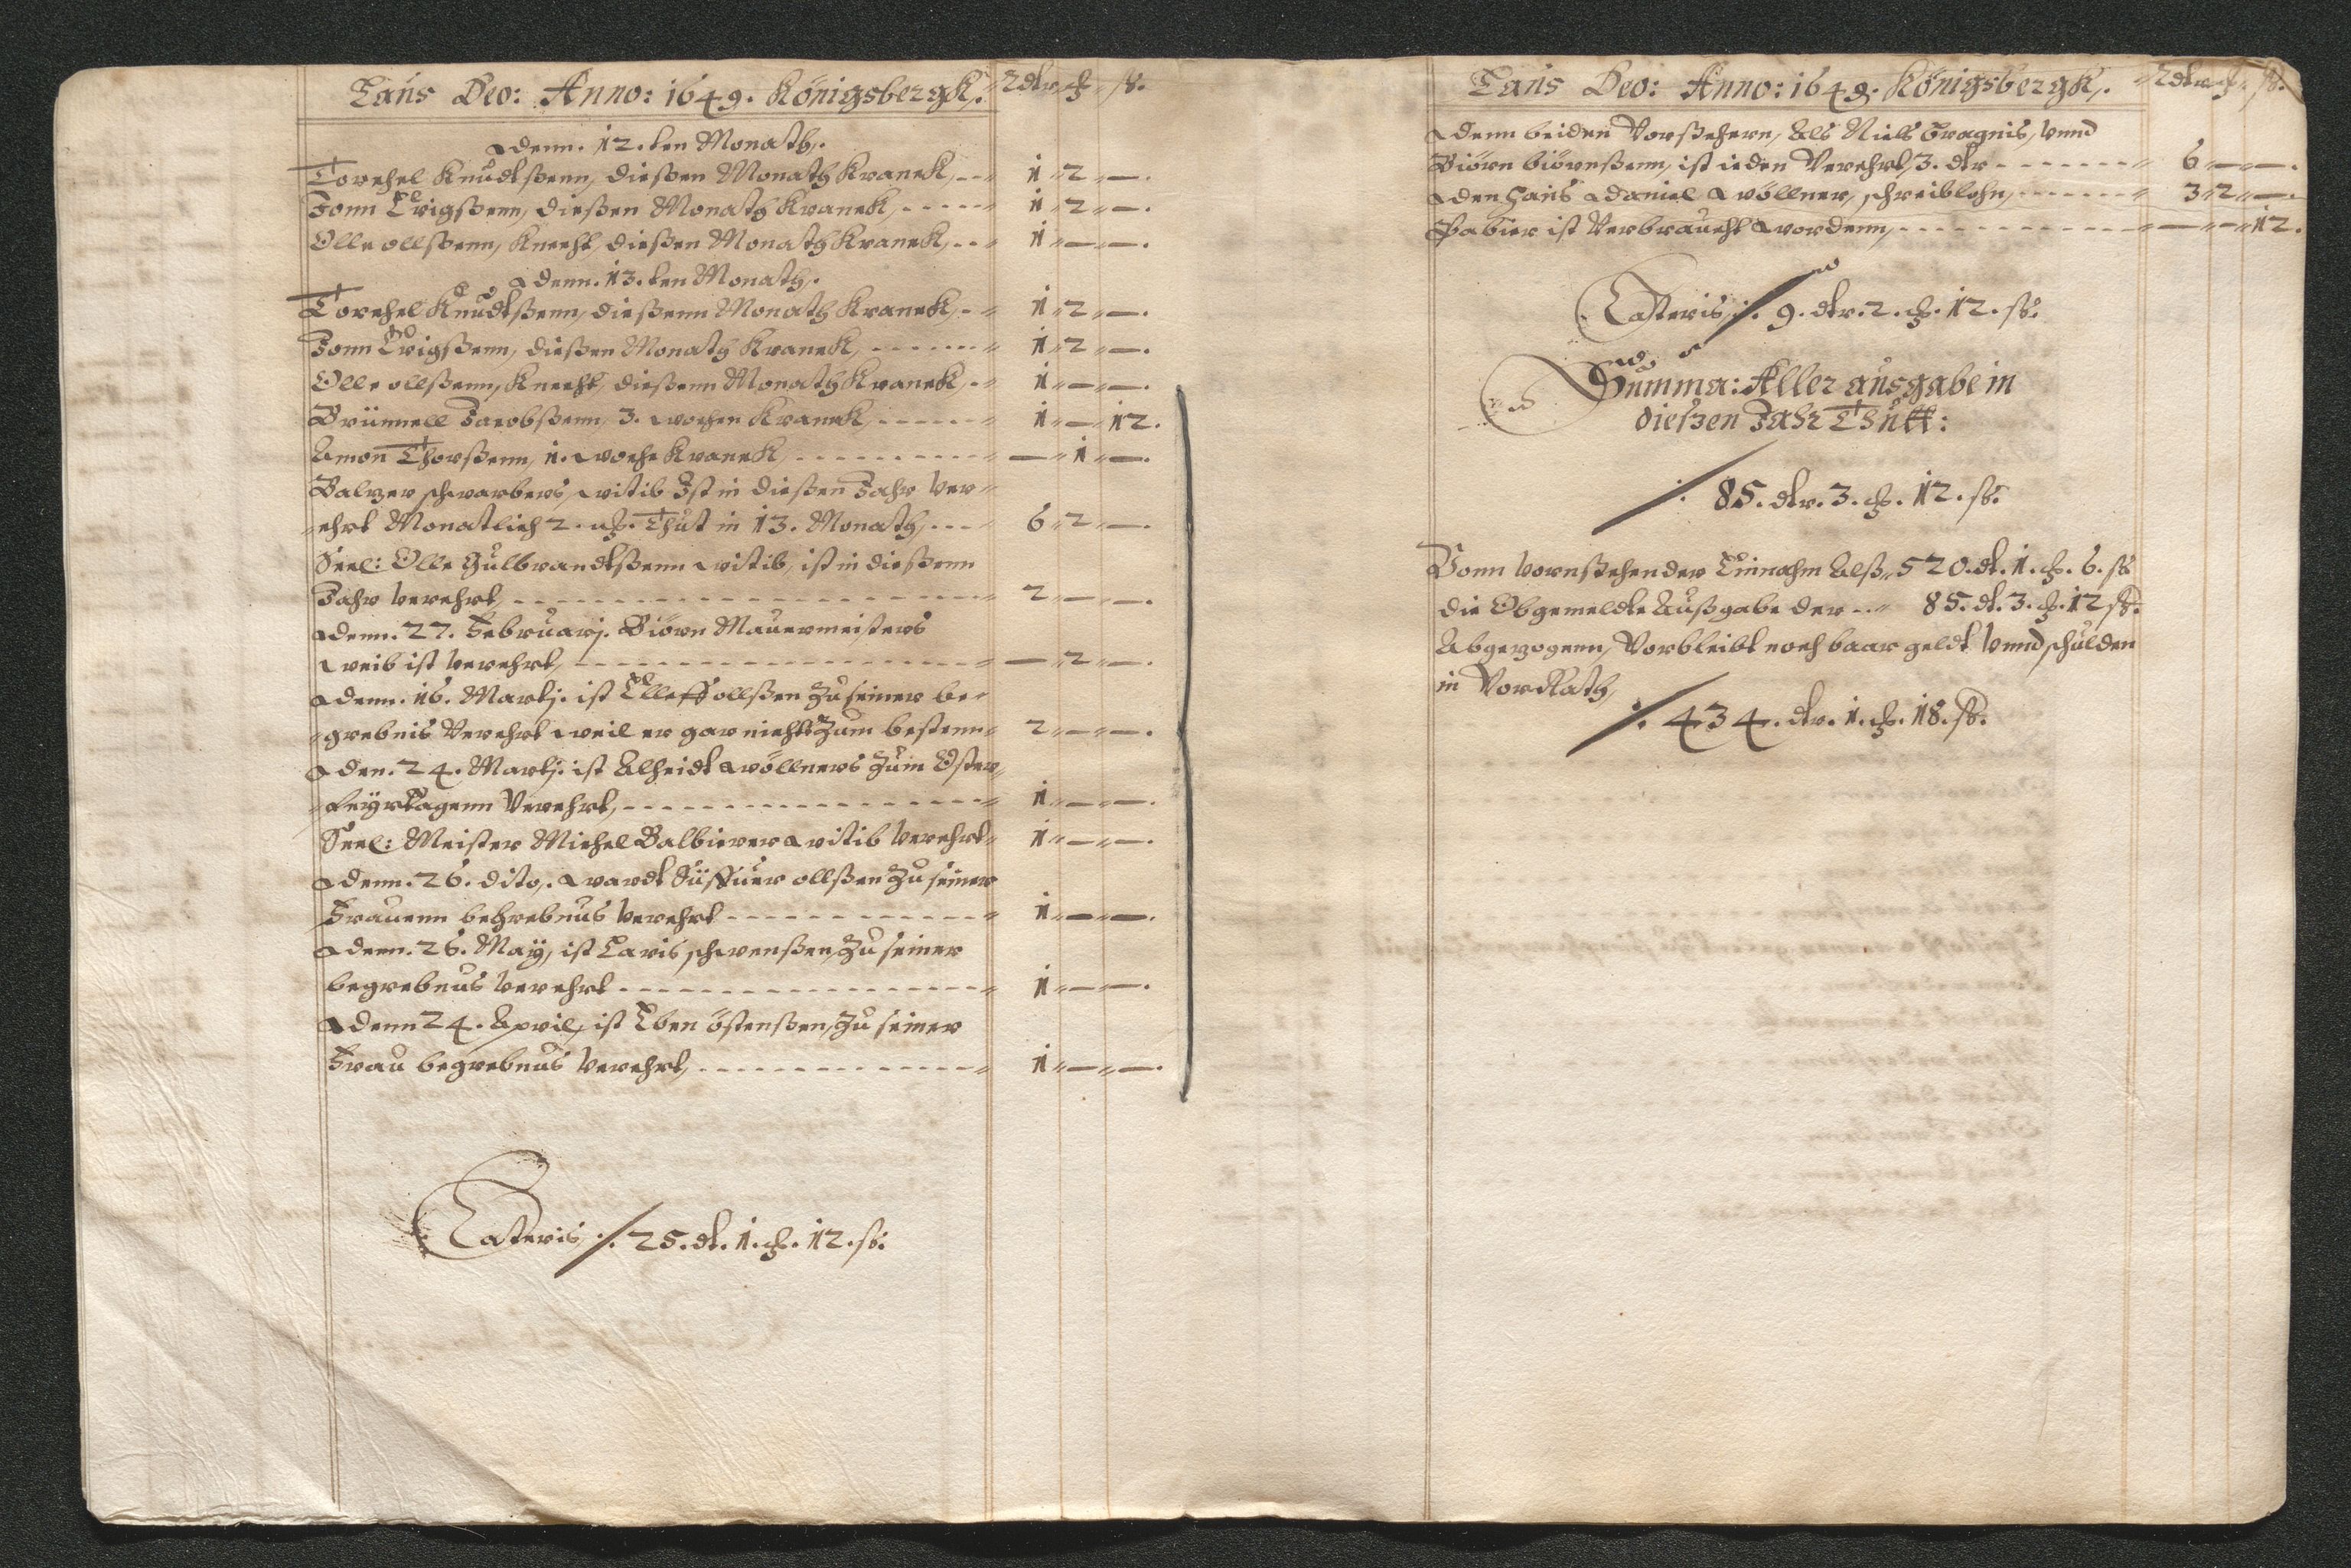 Laus Deo: Anno: 1649. Königsbergk. Rdlr. ꝗ. ß.
Denn. 12. ten Monath.
Torchel Knudtßenn, dießen Monath Kranck, --- 1 " 2 " — .
Jonn Erigßenn, dießen Monath Kranck, ----- 1 " 2 " — .
Olle ollßenn, Knecht, dießen Monath Kranck, --- 1 " — " — .
Denn. 13. ten Monath.
Torchel Knudtßenn, dießenn Monath Kranck, -- 1 " 2 " — .
Jonn Erigßenn, dießen Monath Kranck, ------- 1 " 2 " — .
Olle ollßenn, Knecht, dießenn Monath Kranck, -- 1 " — " — .
Brünnell Jacobßenn, 3. wochen Kranck, ------ 1 " — " 12.
Amon Thorßenn, 1. woche Kranck, ---------- — " 1 " — .
Balzer schwarbers, witib Ist in dießen Jahr ver"
"ehrt Monatlich 2. ꝗ. Thut in 13. Monath, --- 6 " 2 " — .
Seel: Olle Gulbrandtßenn witib, ist in dießenn
Jahr verehrt, -------------------- 2 " — " — .
Denn. 27. Februarj. Biörn Mauermeisters
weib ist verehrt, ------------------ — " 2 " — .
Denn. 16. Martj. ist Elleff ollßen Zu seiner be"
"grebnis Verehrt weil er gar nichts Zum bestenn" 2 " — " — .
Den. 24. Martj. ist Alheidt wöllners Zum Oster"
"feyrtagenn Verehrt, ---------------- 1 " — " — .
Seel: Meister Michel Balbierer witib verehrt" 1 " — " — .
Denn. 26. dito, wardt Süffuer ollßen Zu seiner
Frauenn behrebnus verehrt ----------- 1 " — " — .
Denn. 26. May, ist Laris schwenßen, Zu seiner
begrebnus verehrt ---------------- 1 " — " — .
Denn 24. April, ist Eben östenßen, Zu seiner
Frau begrebnus verehrt, ------------- 1 " — " — .
Lateris ./. 25. dl. 1. ꝗ. 12. ß.
Laus Deo: Anno: 1649. Königsbergk. Rdlr. ꝗ. ß.
Denn beiden Vorßehern, Als Niels Bragnis, vnnd
Biörn biörnßenn, ist ieden Verehrt, 3. dlr ------- 6 " — " — .
Den Hans Daniel wöllner, schreiblohn, ------ 3 " 2 " — .
Pabier ist Verbraucht wordenn, ------------ — " — " 12.
Lateris ./. 9. dlr. 2. ꝗ. 12. ß.
Summa: Aller ausgabe in
dießen Jahr Thutt:
./. 85. dlr. 3. ꝗ. 12. ß.
Vonn vornstehender Einnahm Alß " 520. dl. 1. ꝗ. 6. ß
die Obgemeldte Außgabe der --- " 85. dl. 3. ꝗ. 12 ß.
Abgezogenn, Vorbleibt noch baar geldt vnnd schulden
in VorRath,
./. 434. dlr. 1. ꝗ. 18. ß.